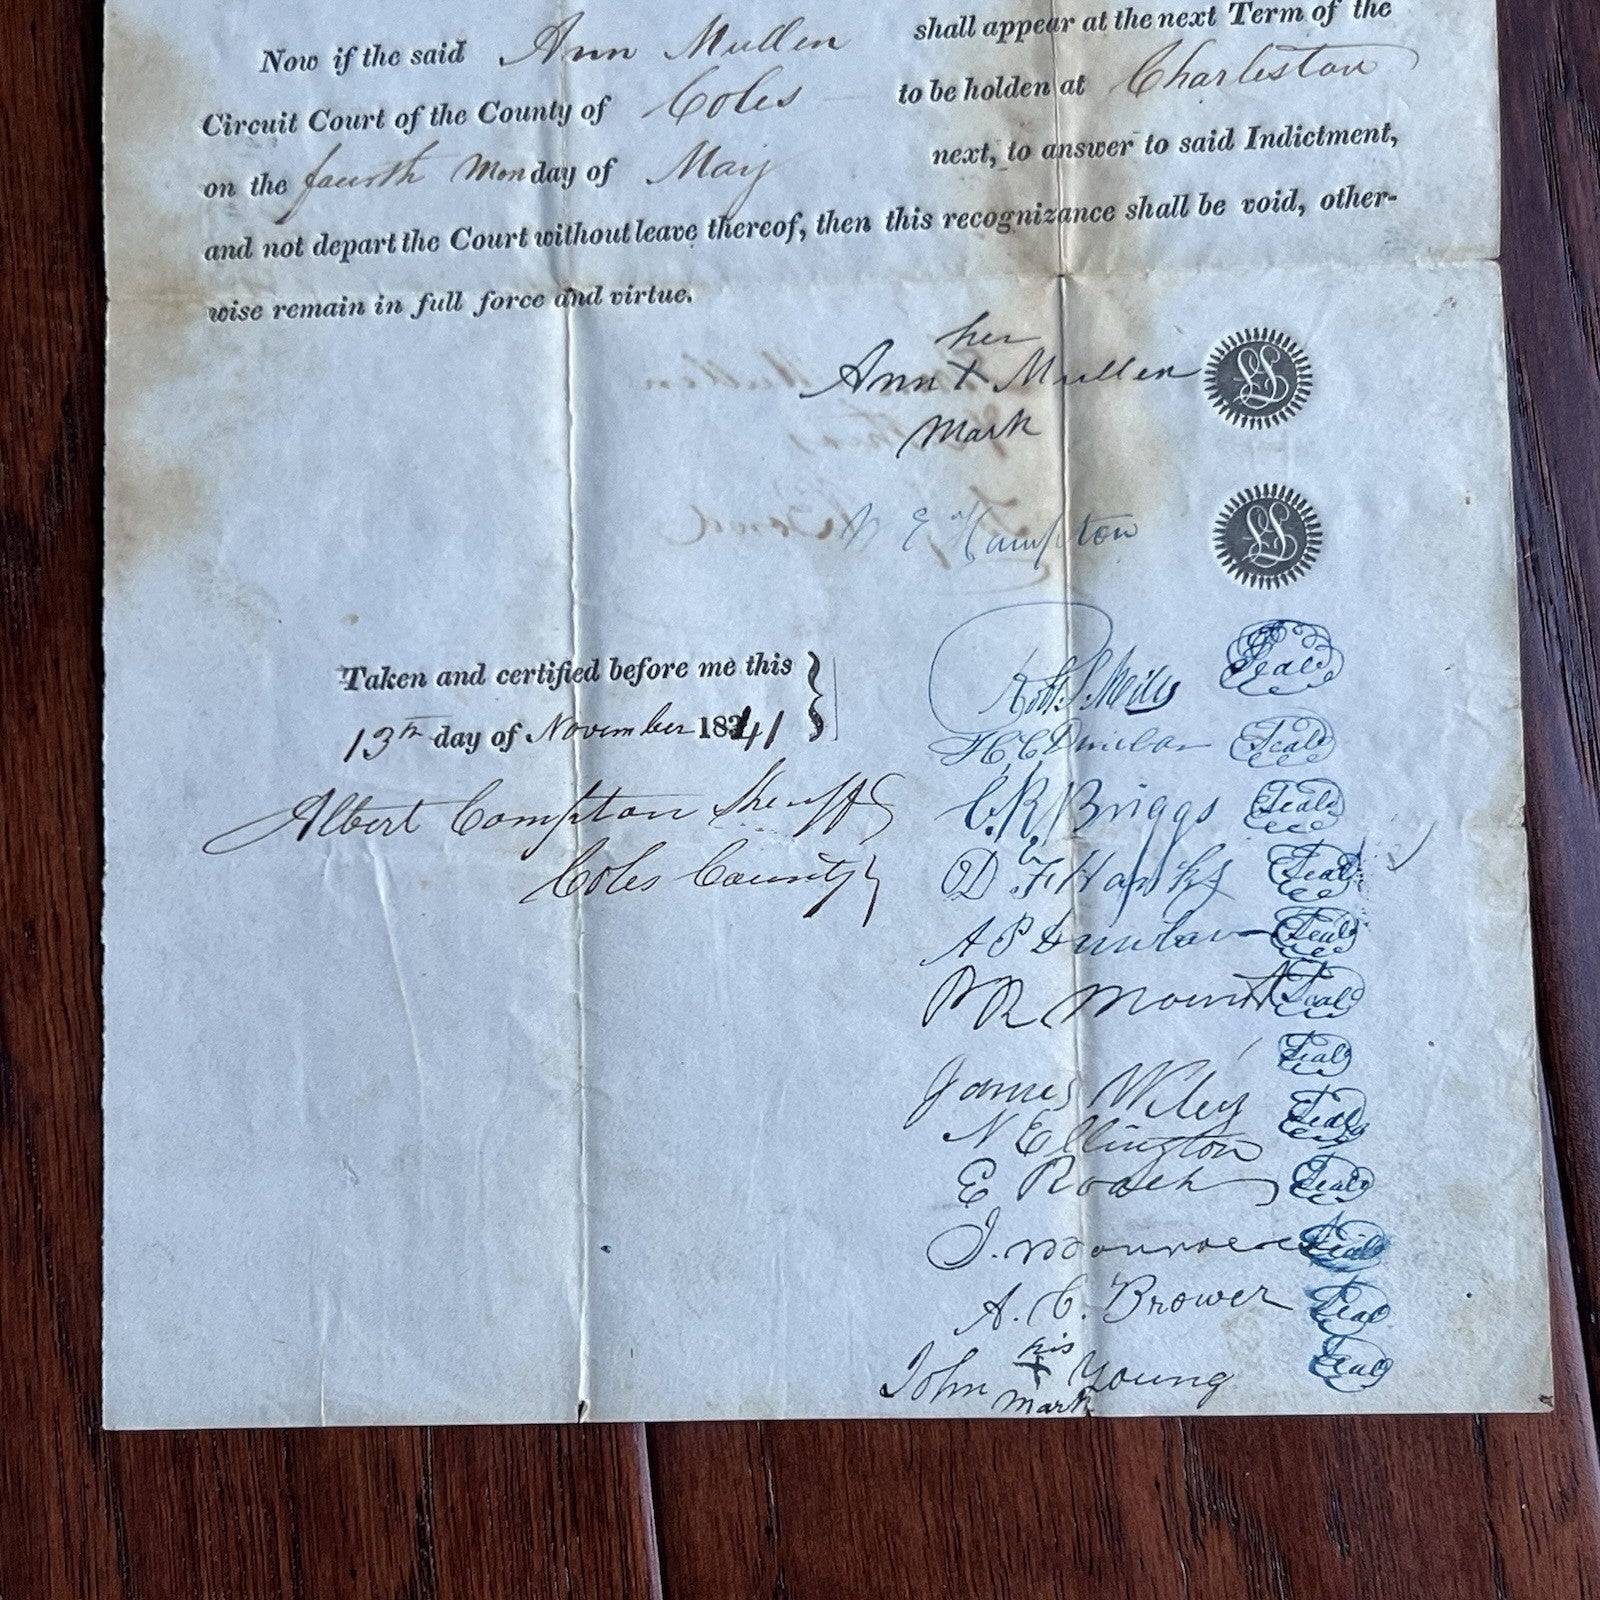 Now if the said Ann Mullen shall appear at the next Term of the
Circuit Court of the County of Coles to be holden at Charleston
on the fourth Monday of May next, to answer to said Indictment,
and not depart the Court without leave thereof, then this recognizance shall be void, other-
wise remain in full force and virtue.
her
Ann X Mullen LS
mark
E Hampton LS
Taken and certified before me this
13th day of November 1841
Albert Compton Sheriff
Coles County
Robt. S. Mills Seal
H. C. Dunbar Seal
C. R. Briggs Seal
D F Hanks Seal
A P Dunbar Seal
R Mount Seal
Seal
James Wiley
N Ellington Seal
E Roach Seal
J. Monroe Seal
A. C. Brower Seal
his
John X Young Seal
mark